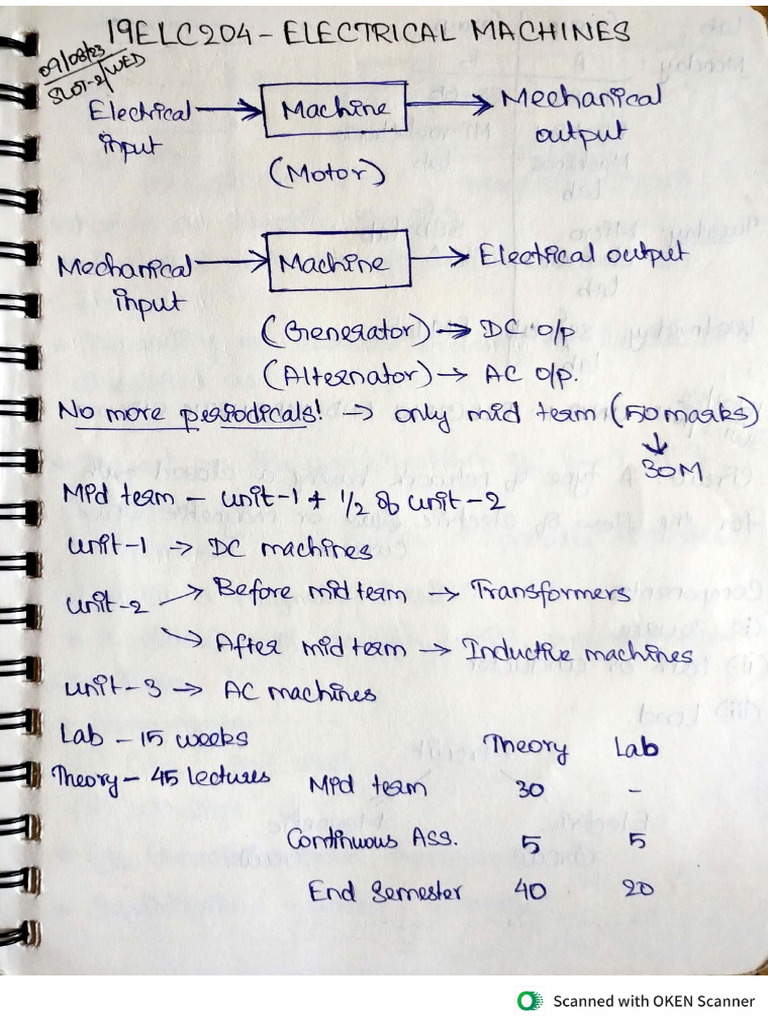 19ELC204 - ELECTRICAL MACHINES
09/08/23
SLOT-2/WED
Electrical input → Machine → Mechanical output
(Motor)
Mechanical input → Machine → Electrical output
(Generator) → DC o/p
(Alternator) → AC o/p.
No more periodicals! → only mid term (50 marks)
↓
30M
Mid term - unit-1 + 1/2 of unit-2
unit-1 → DC machines
unit-2 → Before mid term → Transformers
→ After mid term → Inductive machines
unit-3 → AC machines
Lab - 15 weeks
Theory - 45 lectures
Theory Lab
Mid term 30 -
Continuous Ass. 5 5
End Semester 40 20
Scanned with OKEN Scanner